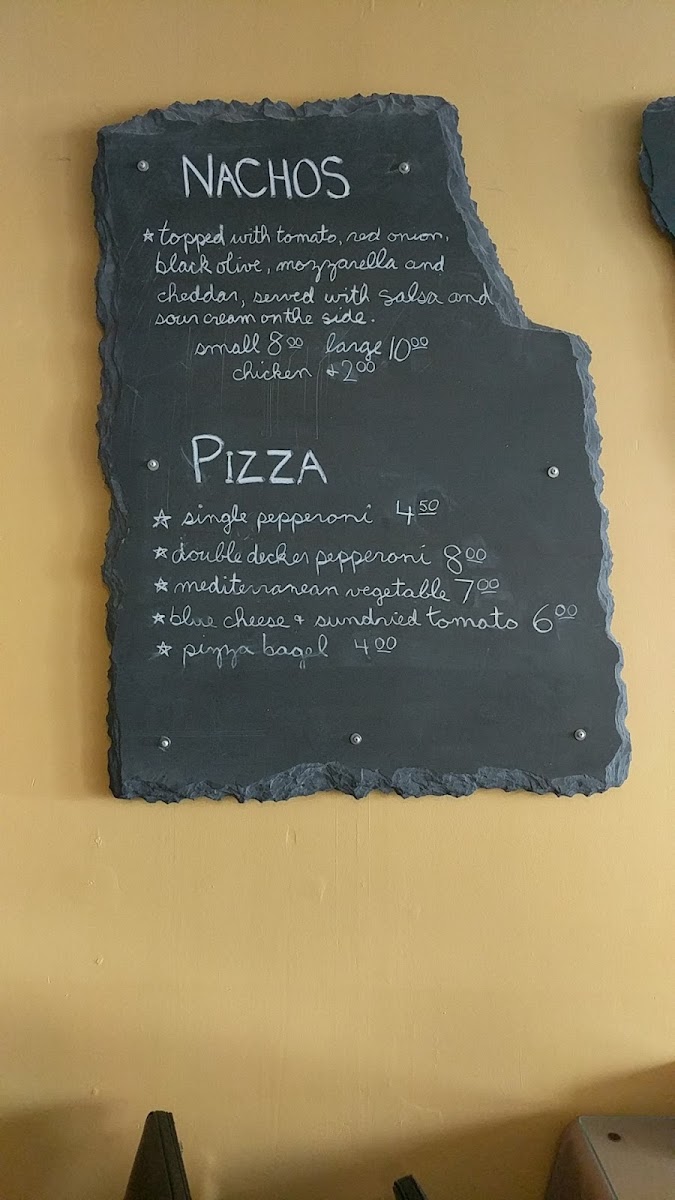 NACHOS
☆ topped with tomato, red onion,
black olive, mozzarella and
cheddar, served with salsa and
sour cream on the side.
small 8 00 large 10 00
chicken + 2 00
PIZZA
☆ single pepperoni 4 50
☆ double decker pepperoni 8 00
☆ mediterranean vegetable 7 00
☆ blue cheese + sundried tomato 6 00
☆ pizza bagel 4 00